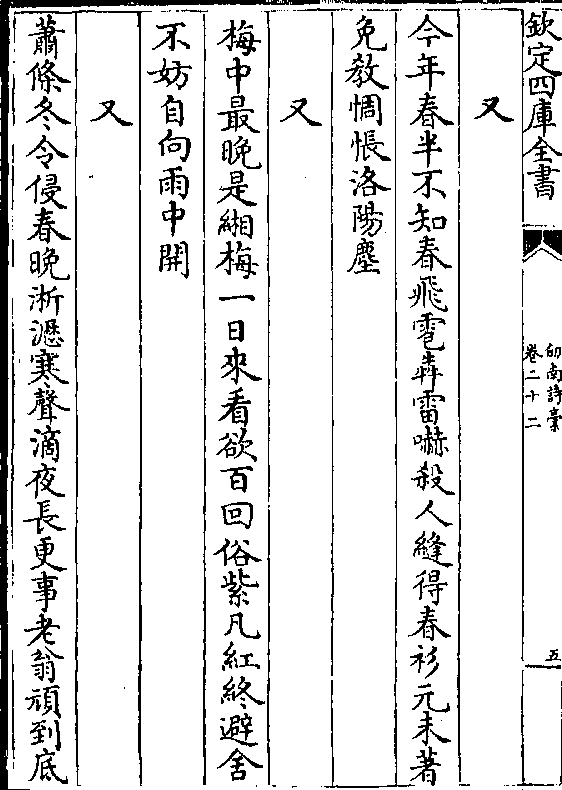 欽定四庫全書
卬南詩藁
卷二十二
五
又
今年春半不知春飛雹犇雷嚇殺人縫得春衫元未著
免教惆悵洛陽塵
又
梅中最晩是緗梅一日來看欲百回俗紫凡紅終避舍
不妨自向雨中開
又
蕭條冬令侵春晩淅瀝寒聲滴夜長更事老翁頑到底